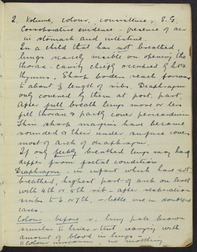 2. Volume, colour, consistence, S.G.
Corroborative evidence, presence of air
in stomach and intestine.
In a child that has not breathed,
lungs scarcely visible on opening the
thorax. Cavity chiefly occupied by heart &
thymus. Sharp borders reach forward
to about of length of ribs. Diaphragm
only covered by them at post. part.
After full breath lungs more or less
fill thorax & partly cover pericardium
Their sharp margins have become
rounded & their under surface covers
most of arch of diaphragm.
If only feebly breathed lungs may hardly
differ from foetal condition
Diaphragm, in infant which has not
breathed, highest part of arch on level
with 4th or 5th rib - after respiration
sinks to 6 or 7th,
Colour before r. lung pale brown
similar to liver that varying with
amount of blood in lungs
Colour uniform, no mottling